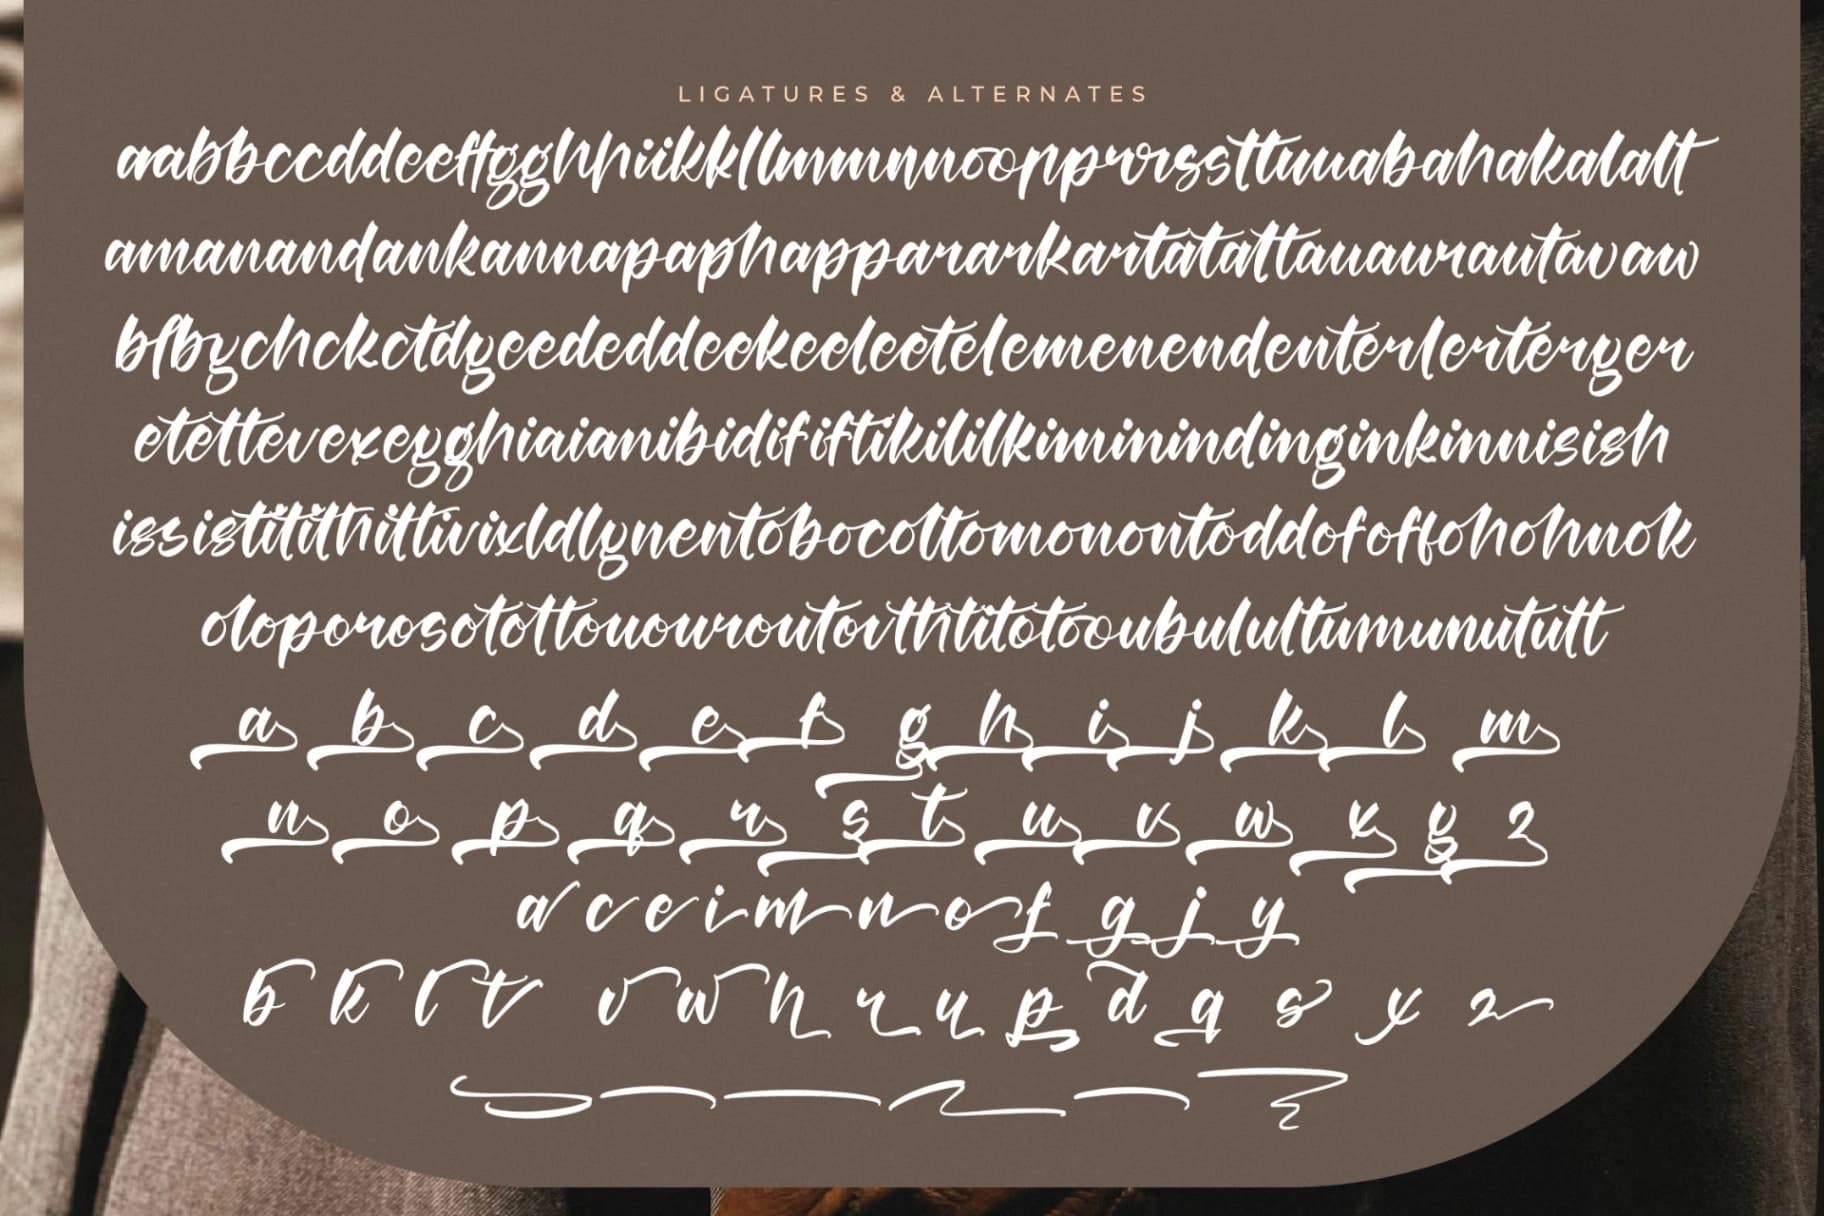 LIGATURES & ALTERNATES
aabbccddeeffgghhiikkllmmnnoopprrssttuuabahakalalt
amanandankannapaphapparararkartatattauaurautavaw
bfbychckctdgeededdeekeeleetelemenendenterlerterger
etettevexeyghiaianibidififtikililkiminindinginkinnisish
issistitithittivixldlgnentobocoltomonontoddofoffohohnok
oloporosotottouowroutovthtitotooubulultumunututt
a b c d e f g h i j k l m
n o p q r s t u v w x y z
a c e i m n o f g j y
b k l t v w h r u p d q s x z